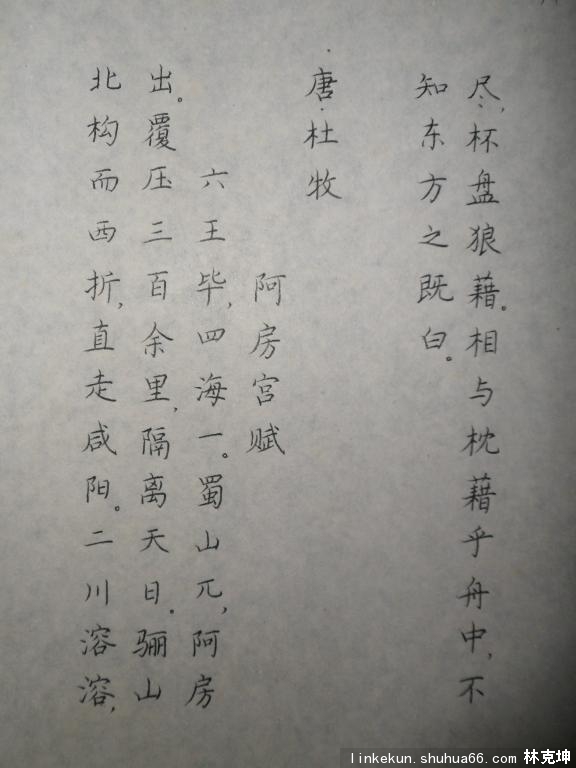 尽,杯盘狼藉。相与枕藉乎舟中,不
知东方之既白。
·唐·杜牧
阿房宫赋
六王毕,四海一。蜀山兀,阿房
出。覆压三百余里,隔离天日。骊山
北构而西折,直走咸阳。二川溶溶,
linkekun.shuhua66.com 林克坤